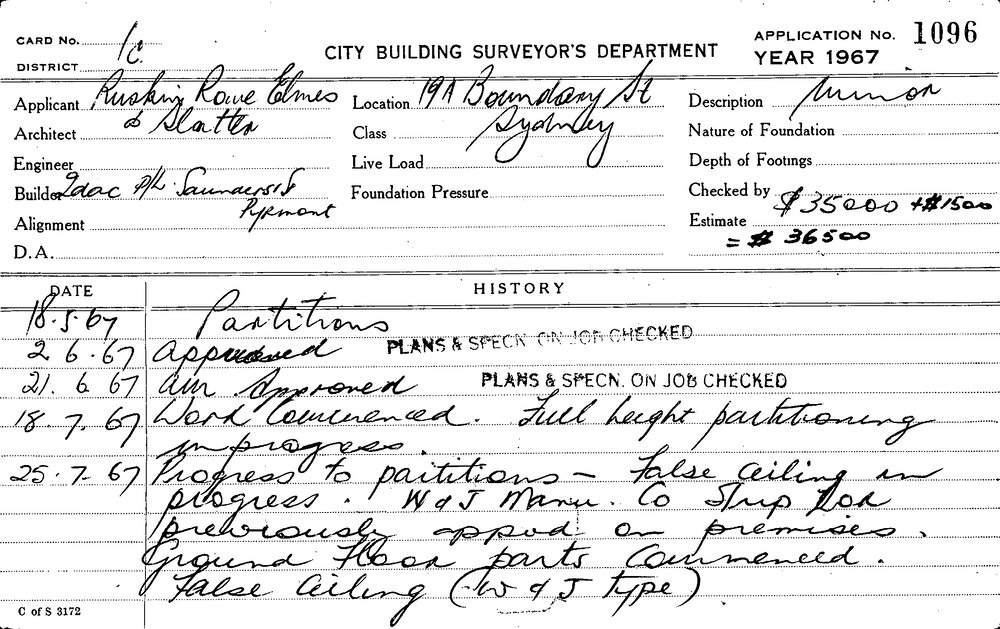 CARD No. 1c.
DISTRICT
CITY BUILDING SURVEYOR'S DEPARTMENT
APPLICATION No. 1096
YEAR 1967
Applicant Ruskin Rowe Elmes
Architect & Slatter
Engineer
Builder P/L Saunders St
Pyrmont
Alignment
D.A.
Location 19A Boundary St
Class Sydney
Live Load
Foundation Pressure
Description Minor
Nature of Foundation
Depth of Footings
Checked by
Estimate $35000 + $1500
= $ 36500
DATE HISTORY
18.5.67 Partitions
2 6.67 Approved PLANS & SPECN. ON JOB CHECKED
21. 6 67 Approved PLANS & SPECN. ON JOB CHECKED
18.7.67 Work Commenced. Full height partitioning
in progress.
25.7.67 Progress to partitions — False ceiling in
progress. W & J Manu. Co Strip
previously appvd on premises.
Ground Floor parts Commenced.
False Ceiling (W & J type)
C of S 3172